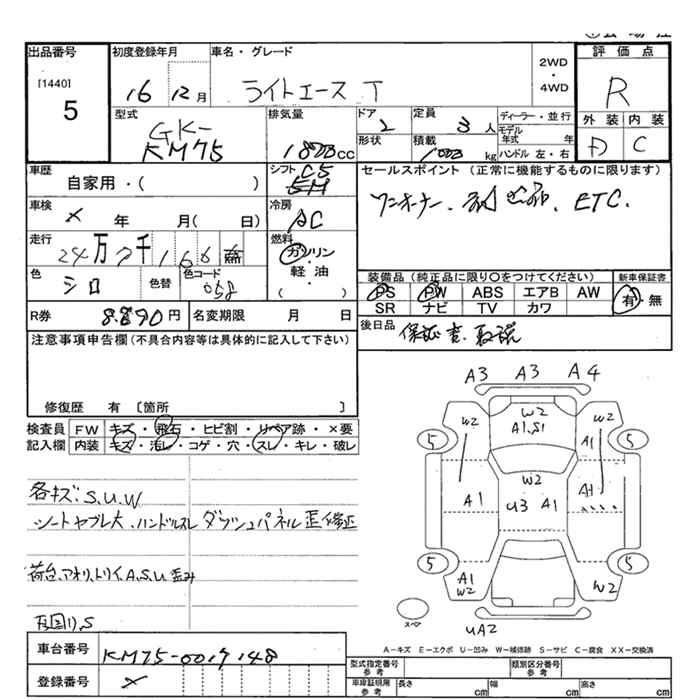 出品番号 初度登録年月 車名・グレード 2WD ・ 4WD 評価点
[1440] 5 16 12月 ライトエース T R
型式 GK-KM75 排気量 1800cc ドア 2 形状 定員 3人 積載 1000kg ディーラー・並行 モデル年式 年 ハンドル 左・右 外装 D 内装 C
車歴 自家用・( ) シフト C5 セールスポイント (正常に機能するものに限ります)
車検 × 年 月( 日) 冷房 AC ワンオーナー、 ETC.
走行 24万7千166 燃料 ガソリン 軽油 ( )
色 シロ 色替 色コード 058 装備品(純正品に限り〇をつけてください) 新車保証書
PS PW ABS エアB AW 有・無
SR ナビ TV カワ
R券 8.890円 名変期限 月 日
後日品 保証書、取説
注意事項申告欄(不具合内容は具体的に記入して下さい)
修復歴 有 [箇所 ]
A3 A3 A4
検査員 FW キズ・飛石・ヒビ割・リペア跡・×要
記入欄 内装 キズ・汚レ・コゲ・穴・スレ・キレ・破レ
W2 W2 A1,S1 W2
5 A1 5
W2
A1 U3 A1 A1
5 5
A1 W2 W2
スペア
UA2
各キズ:S.U.W
シートヤブレ大、ハンドルスレ ダッシュパネル歪修正
荷台、アオリ、トリイ、A,S,U歪み
A−キズ E−エクボ U−凹み W−補修跡 S−サビ C−腐食 XX−交換済
車台番号 KM75-0019148
型式指定番号 参考 類別区分番号 参考
登録番号 ×
車庫証明用 参考 長さ cm 幅 cm 高さ cm